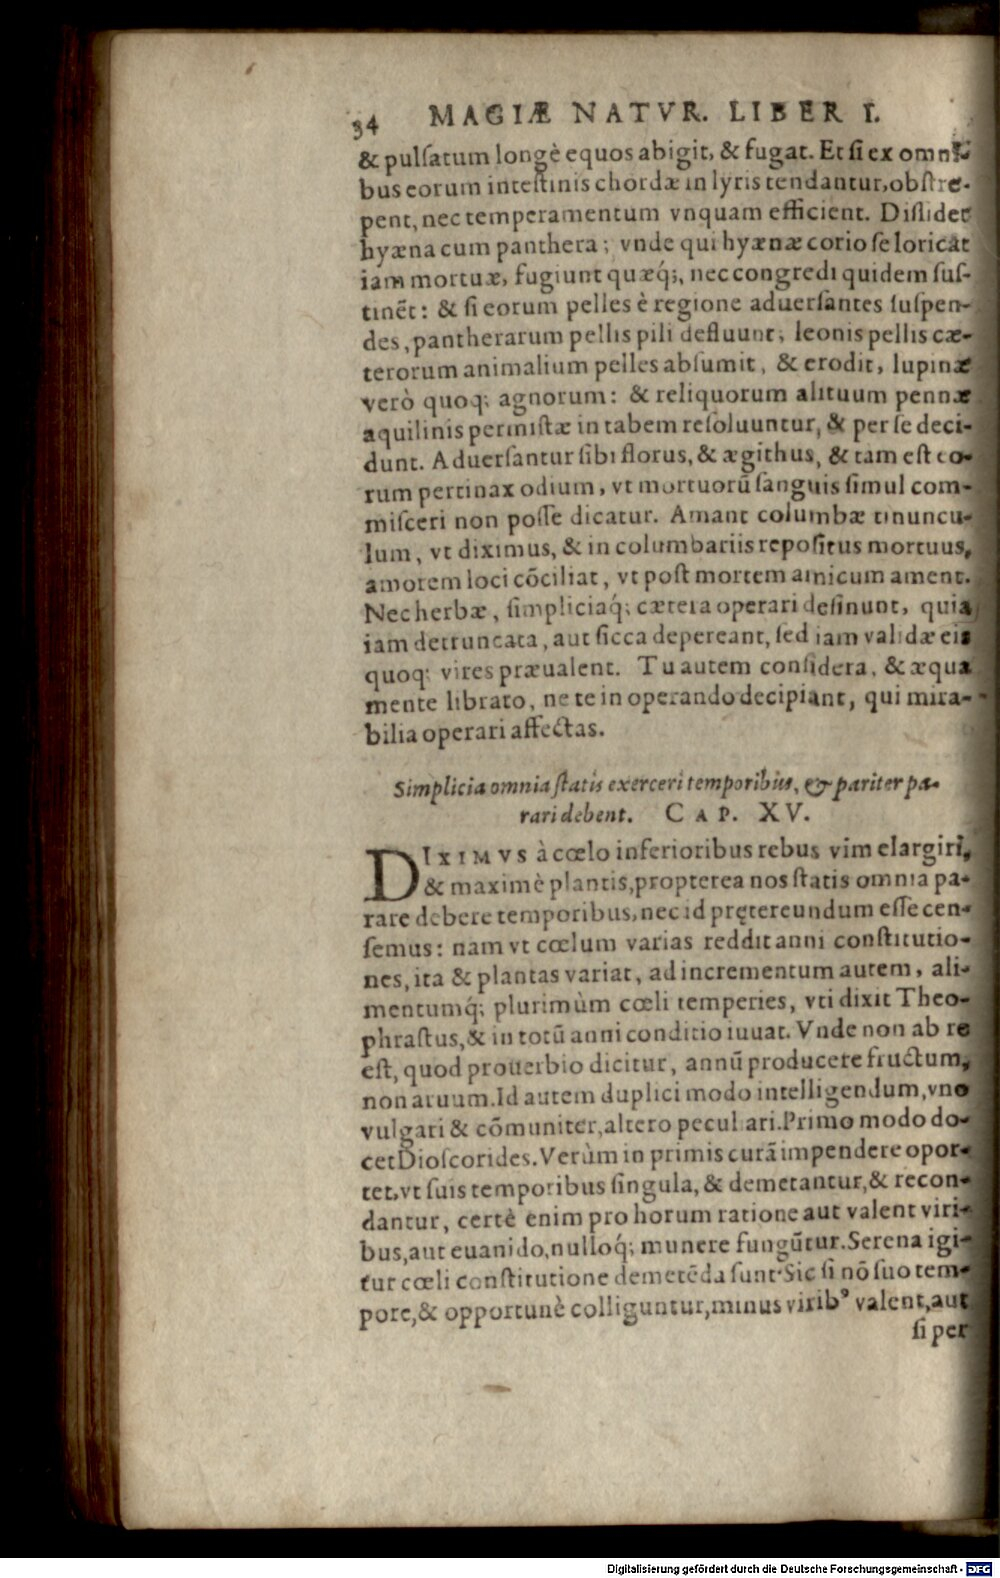 34 MAGIÆ NATVR. LIBER I.
& pulſatum longè equos abigit, & fugat. Et ſi ex omni-
bus eorum inteſtinis chordæ in lyris tendantur, obſtre-
pent, nec temperamentum vnquam efficient. Diſſidet
hyæna cum panthera; vnde qui hyænæ corio ſe loricāt
iam mortuæ, fugiunt quæq́;, nec congredi quidem ſuſ-
tinēt: & ſi eorum pelles è regione aduerſantes ſuſpen-
des, pantherarum pellis pili defluunt; leonis pellis cæ-
terorum animalium pelles abſumit, & erodit, lupinæ
verò quoq; agnorum: & reliquorum alituum pennæ
aquilinis permiſtæ in tabem reſoluuntur, & per ſe deci-
dunt. Aduerſantur ſibi florus, & ægithus, & tam eſt eo-
rum pertinax odium, vt mortuorū ſanguis ſimul com-
miſceri non poſſe dicatur. Amant columbæ tinuncu-
lum, vt diximus, & in columbariis repoſitus mortuus,
amorem loci cōciliat, vt poſt mortem amicum ament.
Nec herbæ, ſimpliciaq́; cætera operari deſinunt, quia
iam detruncata, aut ſicca depereant, ſed iam validæ eis
quoq; vires præualent. Tu autem conſidera, & æqua
mente librato, ne te in operando decipiant, qui mira-
bilia operari affectas.
Simplicia omnia ſtatis exerceri temporibus, & pariter pa-
rari debent. CAP. XV.
DIXIMVS à cœlo inferioribus rebus vim elargiri,
& maximè plantis, propterea nos ſtatis omnia pa-
rare debere temporibus, nec id prętereundum eſſe cen-
ſemus: nam vt cœlum varias reddit anni conſtitutio-
nes, ita & plantas variat, ad incrementum autem, ali-
mentumq́; plurimùm cœli temperies, vti dixit Theo-
phraſtus, & in totū anni conditio iuuat. Vnde non ab re
eſt, quod prouerbio dicitur, annū producere fructum,
non aruum. Id autem duplici modo intelligendum, vno
vulgari & cōmuniter, altero peculiari. Primo modo do-
cet Dioſcorides. Verùm in primis curā impendere opor-
tet, vt ſuis temporibus ſingula, & demetantur, & recon-
dantur, certè enim pro horum ratione aut valent viri-
bus, aut euanido, nulloq́; munere fungūtur. Serena igi-
tur cœli conſtitutione demetēda ſunt. Sic ſi nō ſuo tem-
pore, & opportunè colliguntur, minus virib⁹ valent, aut
ſi per
Digitalisierung gefördert durch die Deutsche Forschungsgemeinschaft - DFG